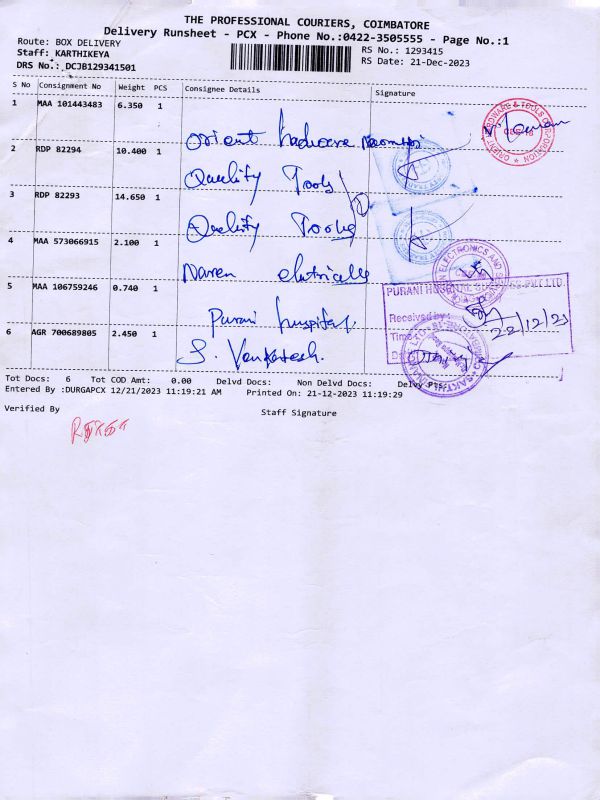 THE PROFESSIONAL COURIERS, COIMBATORE
Delivery Runsheet - PCX - Phone No.:0422-3505555 - Page No.:1
Route: BOX DELIVERY
Staff: KARTHIKEYA
DRS No.: DCJB129341501
RS No.: 1293415
RS Date: 21-Dec-2023
S No Consignment No Weight PCS Consignee Details Signature
1 MAA 101443483 6.350 1
orient
2 RDP 82294 10.400 1
Quality Tools
3 RDP 82293 14.650 1
Quality Tools
4 MAA 573066915 2.100 1
Naren
5 MAA 106759246 0.740 1
Purani hospital
PURANI
PVT LTD.
Received by:
22/12/23
Time
6 AGR 700689805 2.450 1
S. Venkatesh.
Tot Docs: 6 Tot COD Amt: 0.00 Delvd Docs: Non Delvd Docs: Delvy
Entered By :DURGAPCX 12/21/2023 11:19:21 AM Printed On: 21-12-2023 11:19:29
Verified By Staff Signature